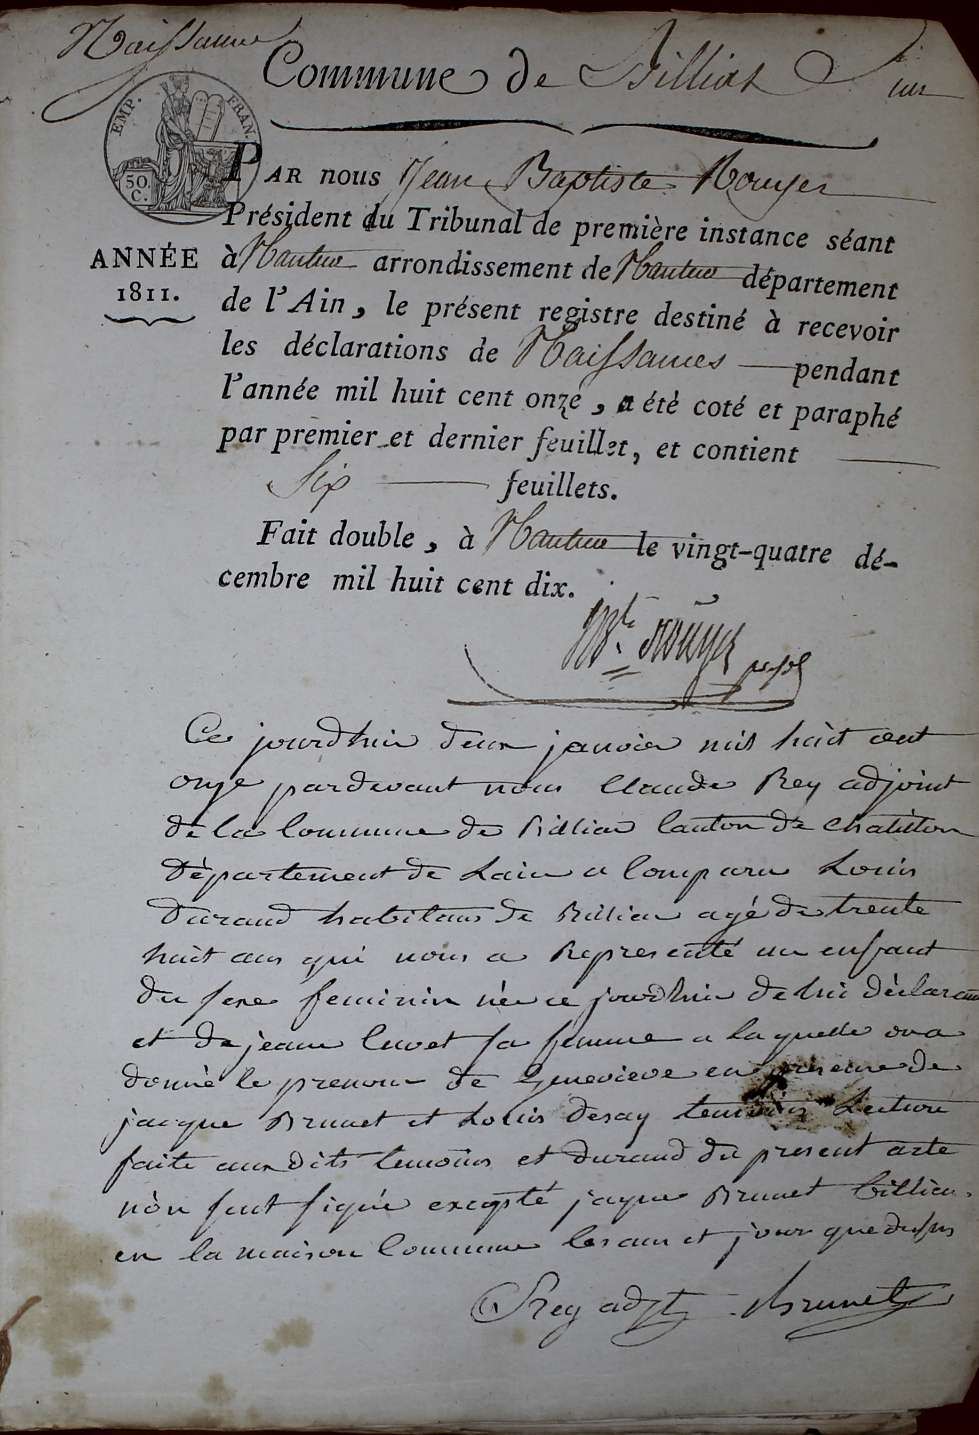 Naissance
Commune de Billiat
EMP. FRAN.
50. C.
PAR nous Jean Baptiste Rouyer
Président du Tribunal de première instance séant
à Nantua arrondissement de Nantua département
ANNÉE
1811.
de l'Ain, le présent registre destiné à recevoir
les déclarations de Naissances pendant
l'année mil huit cent onze, a été coté et paraphé
par premier et dernier feuillet, et contient
Six feuillets.
Fait double, à Nantua le vingt-quatre dé-
cembre mil huit cent dix.
Ce jourdhui deux janvier mil huit cent
onze pardevant nous Claude Rey adjoint
de la Commune de Billia Canton de Chatillon
Département de Lain a Comparu Louis
Durand habitans de Billia agé de trente
huit ans qui nous a Representé un enfant
du sexe feminin née ce jourdhui de lui déclarant
et de jeane Cuvet sa femme a laquelle on a
donné le prenom de Genevieve en presence de
jacque Brunet et Louis desay temoins Lecture
faite aux dits temoins et durand du present acte
nón sont signé excepté jaque Brunet billia
en la maison Commune les an et jour que dessus
C Rey adjt Brunet